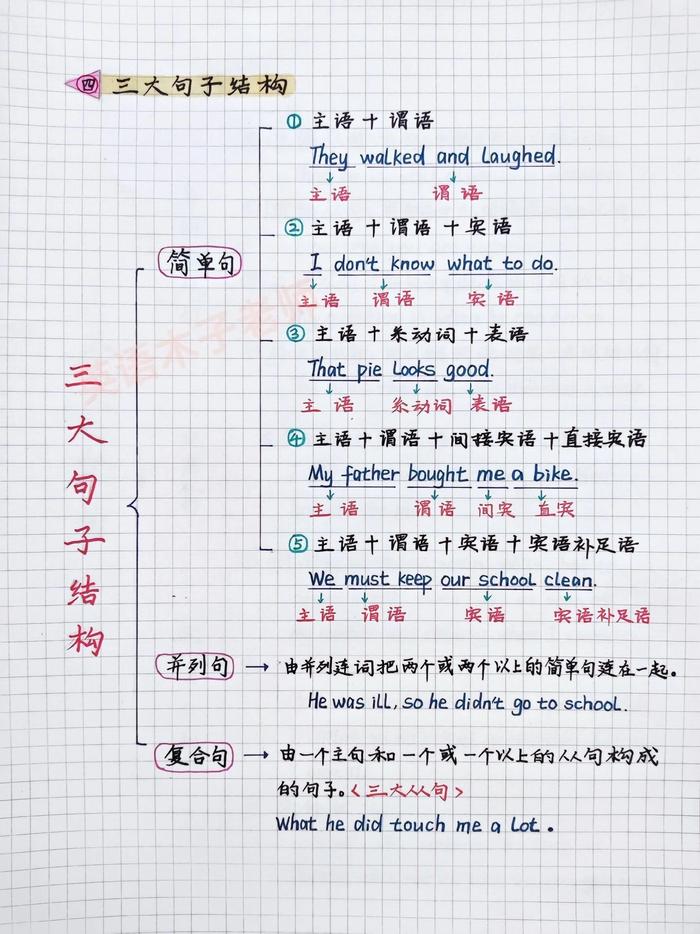 四 三大句子结构
① 主语+谓语
They walked and Laughed.
主语 谓语
② 主语+谓语+宾语
简单句
I don't know what to do.
主语 谓语 宾语
英语木子老师
③ 主语+系动词+表语
That pie Looks good.
主语 系动词 表语
三大句子结构
④ 主语+谓语+间接宾语+直接宾语
My father bought me a bike.
主语 谓语 间宾 直宾
⑤ 主语+谓语+宾语+宾语补足语
We must keep our school clean.
主语 谓语 宾语 宾语补足语
并列句 → 由并列连词把两个或两个以上的简单句连在一起。
He was ill, so he didn't go to school.
复合句 → 由一个主句和一个或一个以上的从句构成
的句子。<三大从句>
What he did touch me a Lot.